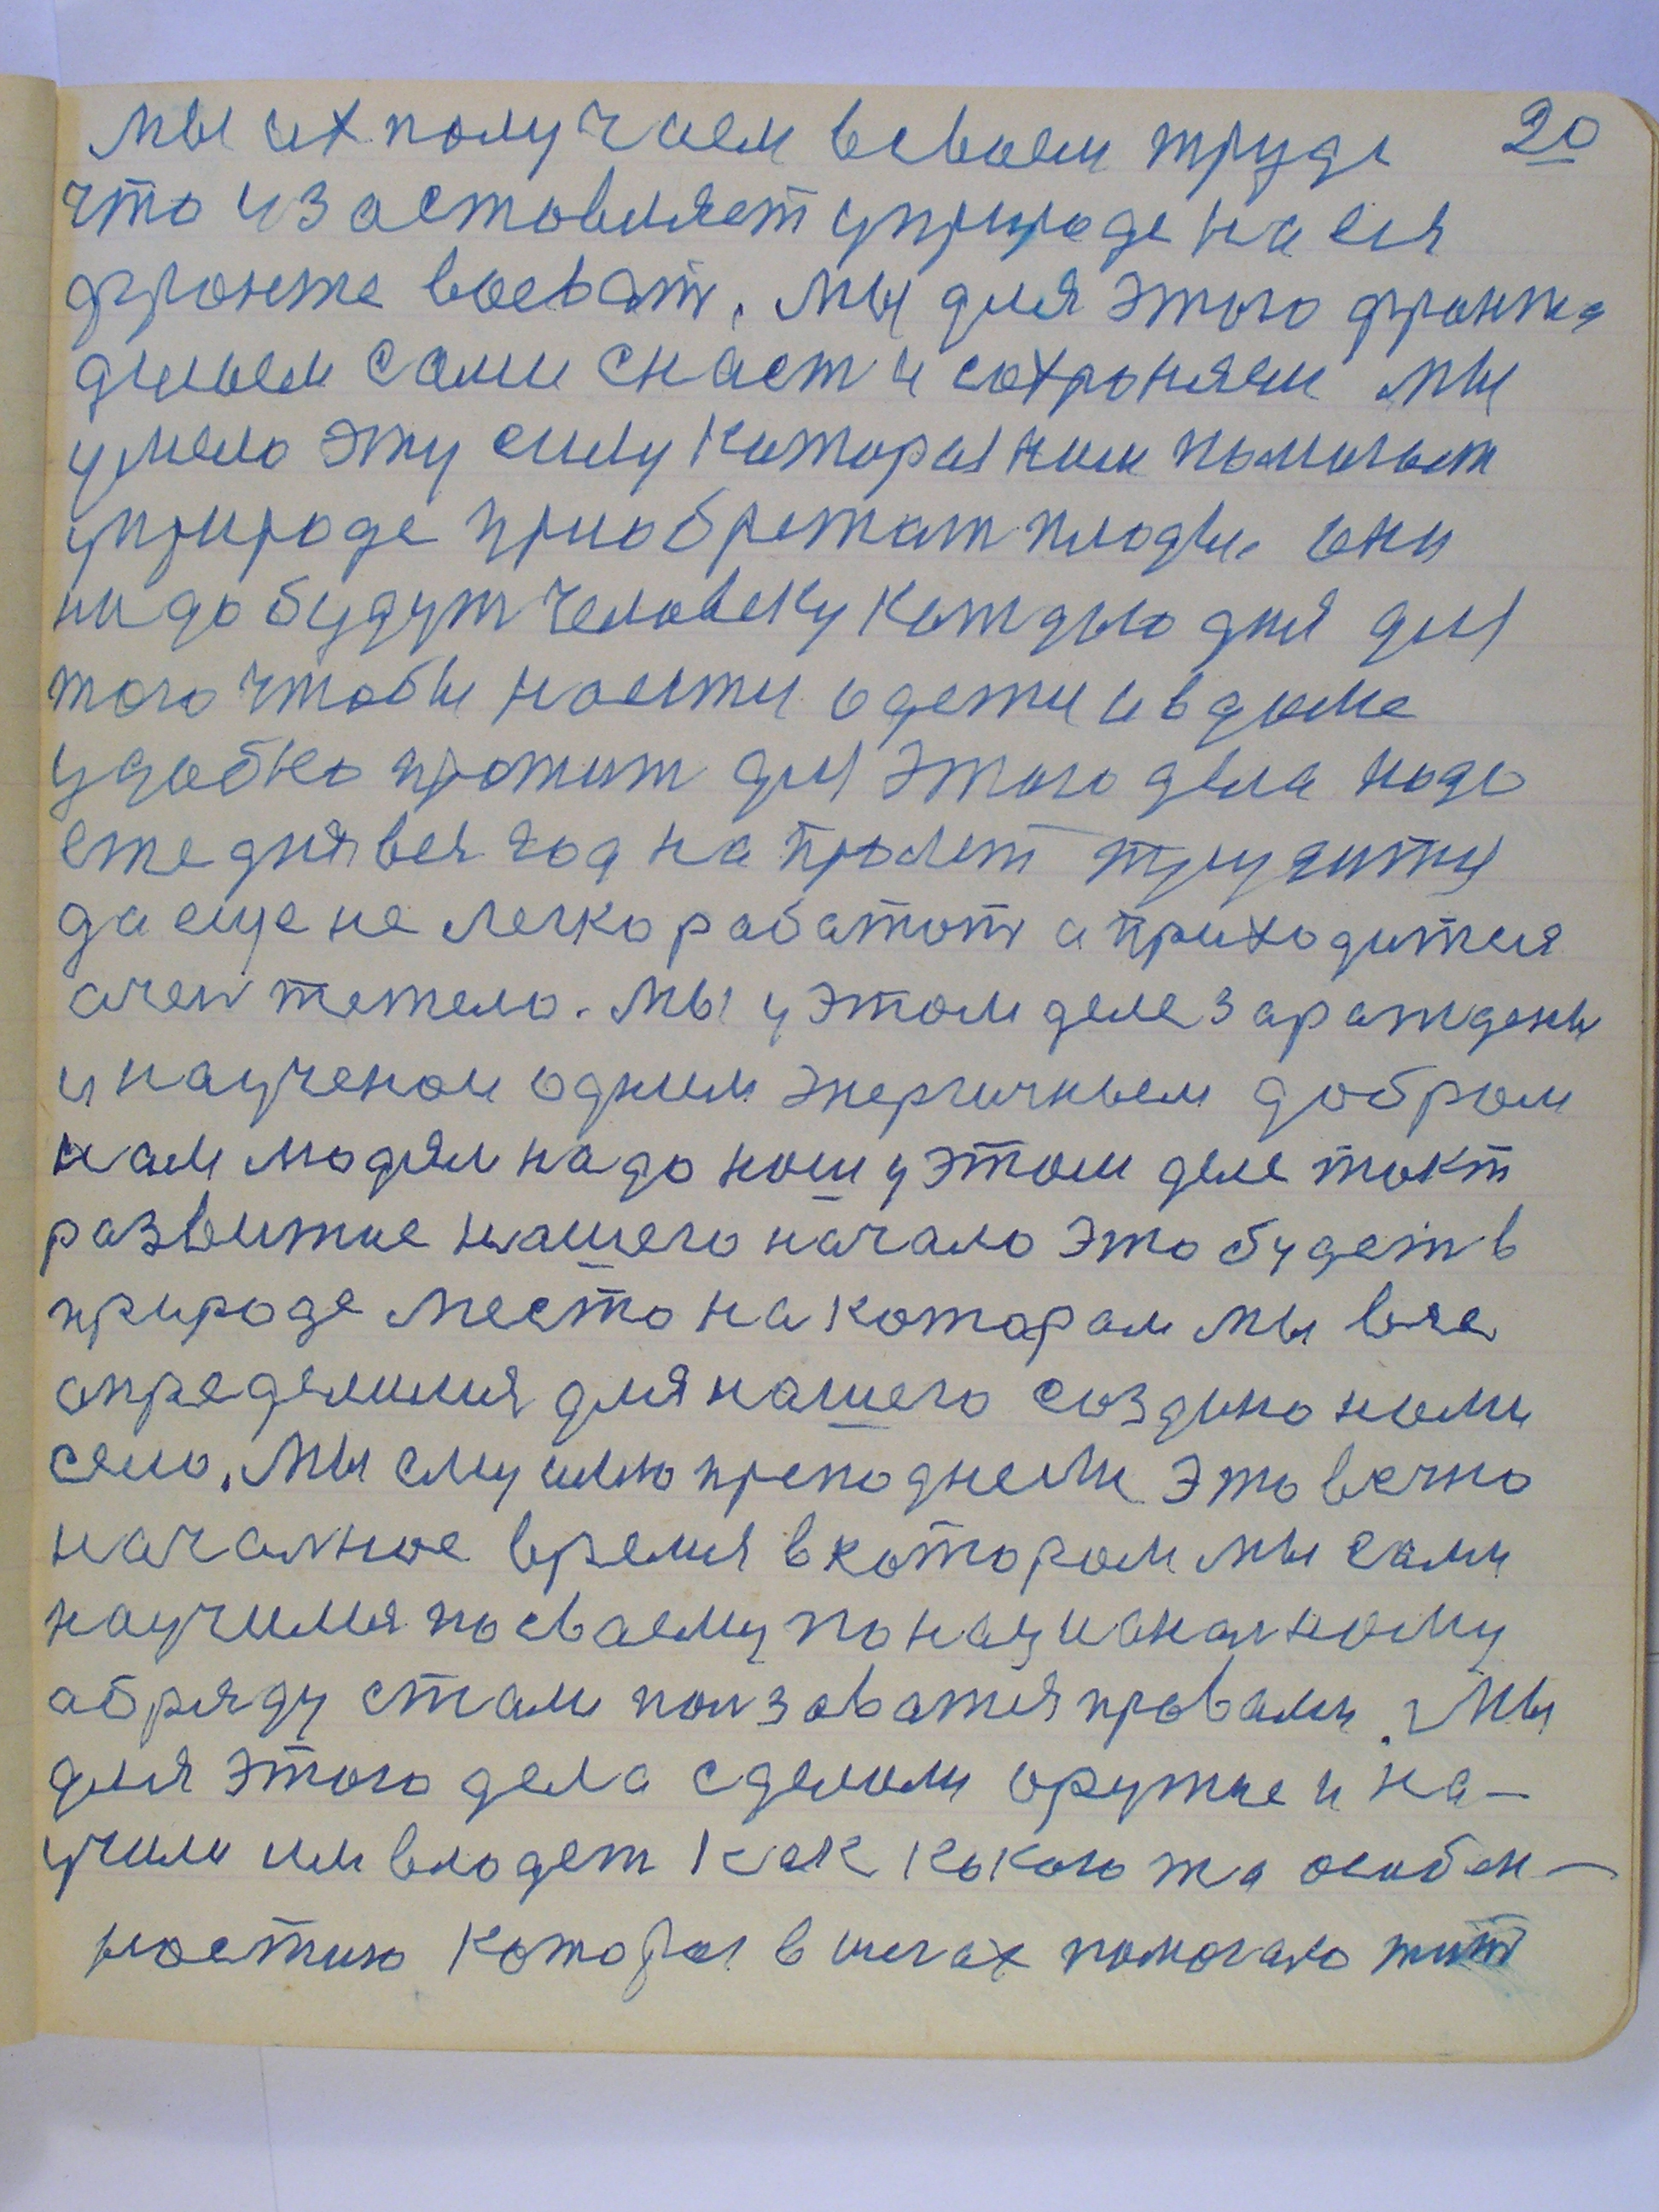 мы их получаем в своем труде 20
что и заставляет у природе на ея
фронте воеват. мы для этого фронта
делаем сами снаст и сохроняем мы
умело эту силу которая нам помогает
у природе приобретат плоды. они
надо будут человеку каждого дня для
того чтобы наести одети и в доме
удобно прожит для этого дела надо
еже дня вся год на пролет трудится
да еще не легко работат а приходится
очен тежело. мы у этом деле зараждены
и наученаи одним энергичным добром
нам людям надо наш у этом деле такт
развитие нашего начало это будет в
природе место на котором мы все
определилися для нашего создано нами
село. мы ему имю преподнели это вечно
началное время в котором мы сами
научимся по сваему по нацианалному
абряду стали ползоватся правами. мы
для этого дела сделали оружие и на-
учили им владет как какою жа особен-
ностию которая в шагах помогаю жит